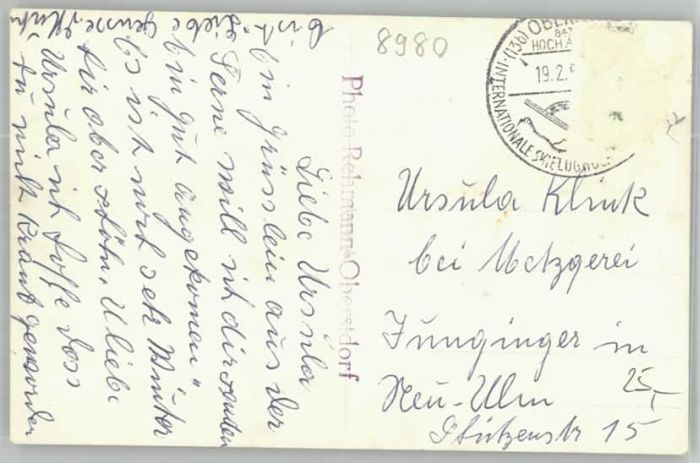 8980
(13b) OBER
HOCH A
19.2.
INTERNATIONALE SKIFLUGWOCHE
Photo-Rehmann-Oberstdorf
Liebe Ursula
ein Grüsslein aus der
Ferne will ich dir senden
bin gut angekomen
Es ist noch sehr Winter
hir aber schön. U liebe
Ursula ich hoffe dass
du nicht krank geworden
bist.
Liebe
Grüsse
Ursula Klink
bei Metzgerei
Junginger in
Neu-Ulm
Stützenstr 15
25,-